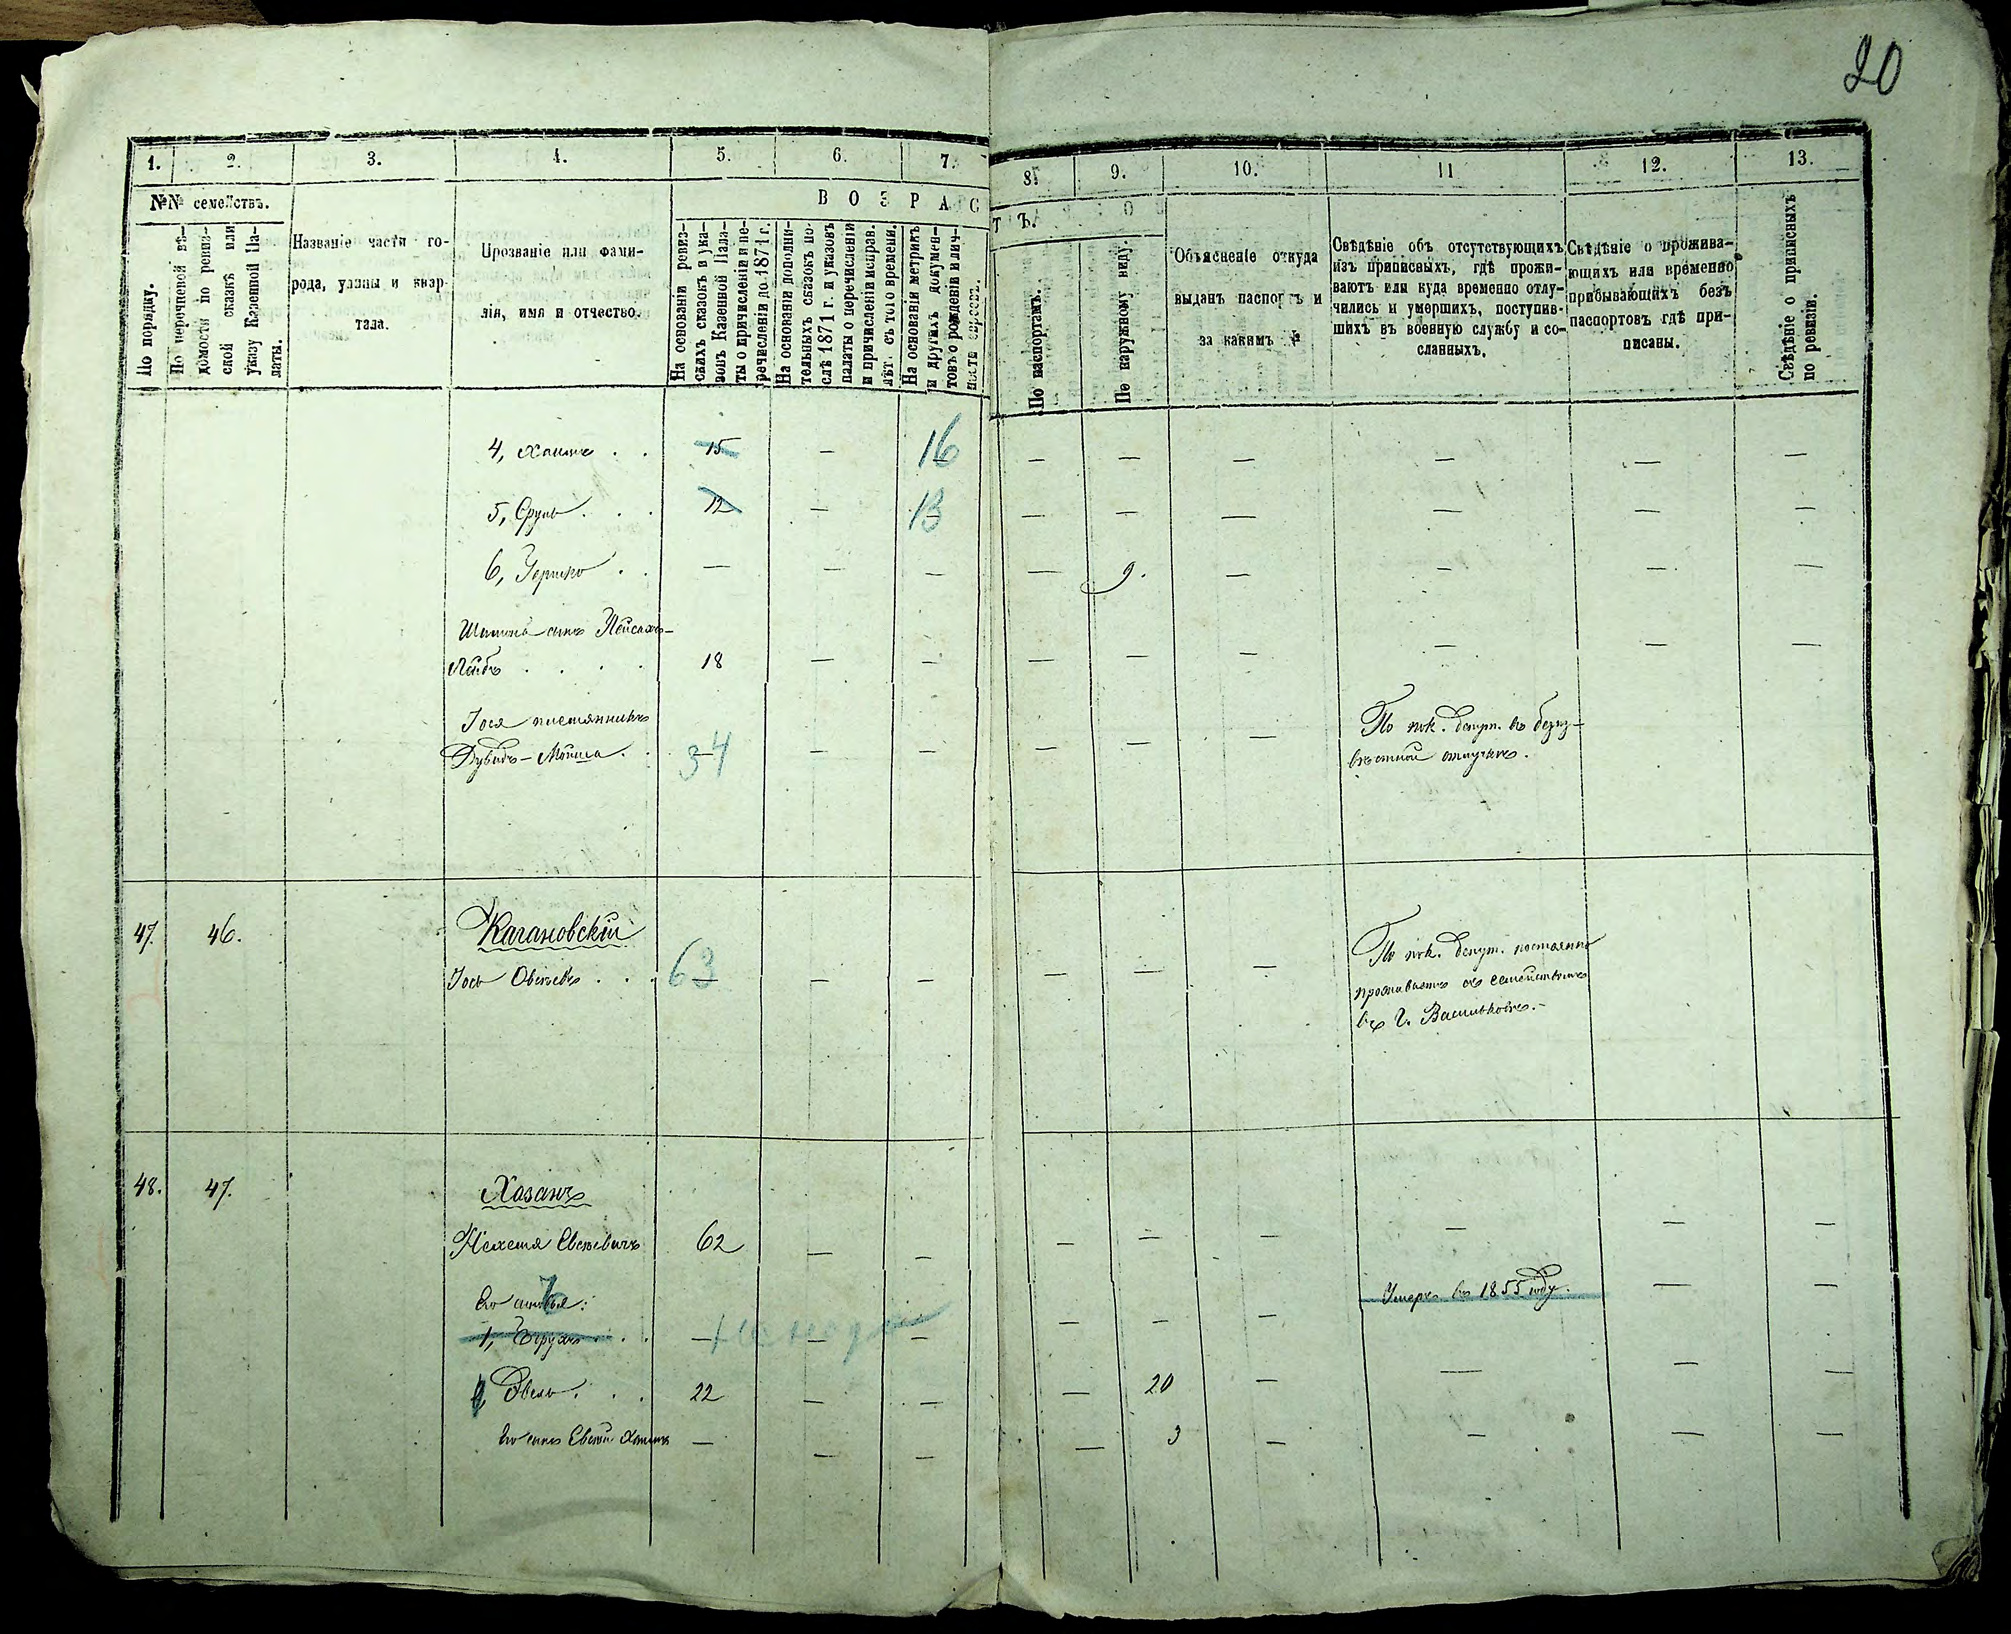 20
1.
2.
3.
4.
5.
6.
7.
8.
9.
10.
11
12.
13.
№№ семействъ.
По порядку.
По перечневой вѣ-
домости по ревиз-
ской сказкѣ или
указу Казенной Па-
латы.
Названіе части го-
рода, улицы и квар-
тала.
Прозваніе или фами-
лія, имя и отчество.
ВОЗРАСТЪ.
На основаніи ревиз-
скихъ сказокъ и ука-
зовъ Казенной Пала-
ты о причисленіи и пе-
речисленіи до 1871 г.
На основаніи дополни-
тельныхъ сказокъ по-
слѣ 1871 г. и указовъ
палаты о перечисленіи
и причисленіи исправ.
лѣт. съ того времени.
На основаніи метрикъ
и другихъ докумен-
товъ о рожденіи и лич-
ности
По паспортамъ.
По наружному виду.
Объясненіе откуда
выданъ паспортъ и
за какимъ №
Свѣдѣніе объ отсутствующихъ
изъ приписныхъ, гдѣ прожи-
ваютъ или куда временно отлу-
чились и умершихъ, поступив-
шихъ въ военную службу и со-
сланныхъ.
Свѣдѣніе о прожива-
ющихъ или временно
прибывающихъ безъ
паспортовъ гдѣ при-
писаны.
Свѣдѣніе о приписныхъ
по ревизіи.
4, Хаимъ . . 15 — 16 — — — — — —
5, Сруль . . . 12 — 13 — — — — — —
6, Гершко . . — — — — 9. — — — —
Шимона сынъ Пейсахъ-
Лейбъ . . . . 18 — — — — — — — —
Іося племянникъ
Дувидъ-Мойша . . 34 — — — — —
По пок. депут. въ безъиз-
вѣстной отлучкѣ.
47. 46. Кагановскій
Іось Овсѣевъ . . . 63 — — — — —
По пок. депут. постоянно
проживаетъ съ семействомъ
въ г. Васильковѣ.-
48. 47. Хазанъ
Нехемя Евсѣевичъ 62 — — — — — — — —
Его сыновья:
1, Берухъ . . — — — — — — Умеръ въ 1855 году. —
Эвель . . . 22 — — — 20 — — — —
Его сынъ Евсѣй Хаимъ — — — — 3 — — — —